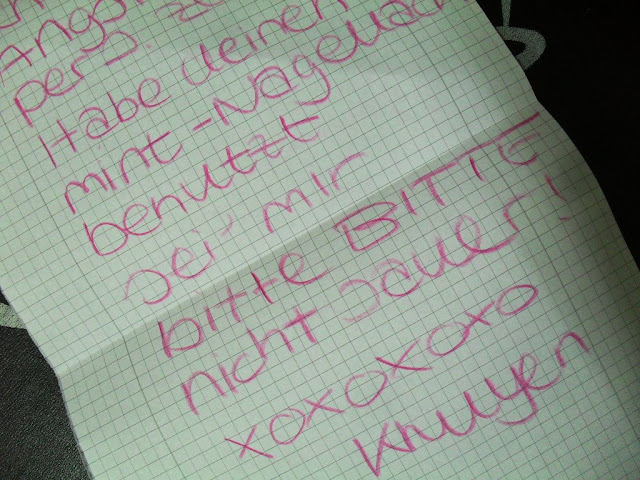 Angst
pers.
Habe deinen
mint-Nagellack
benutzt
sei mir
bitte BITTE
nicht sauer!
xoxoxoxo